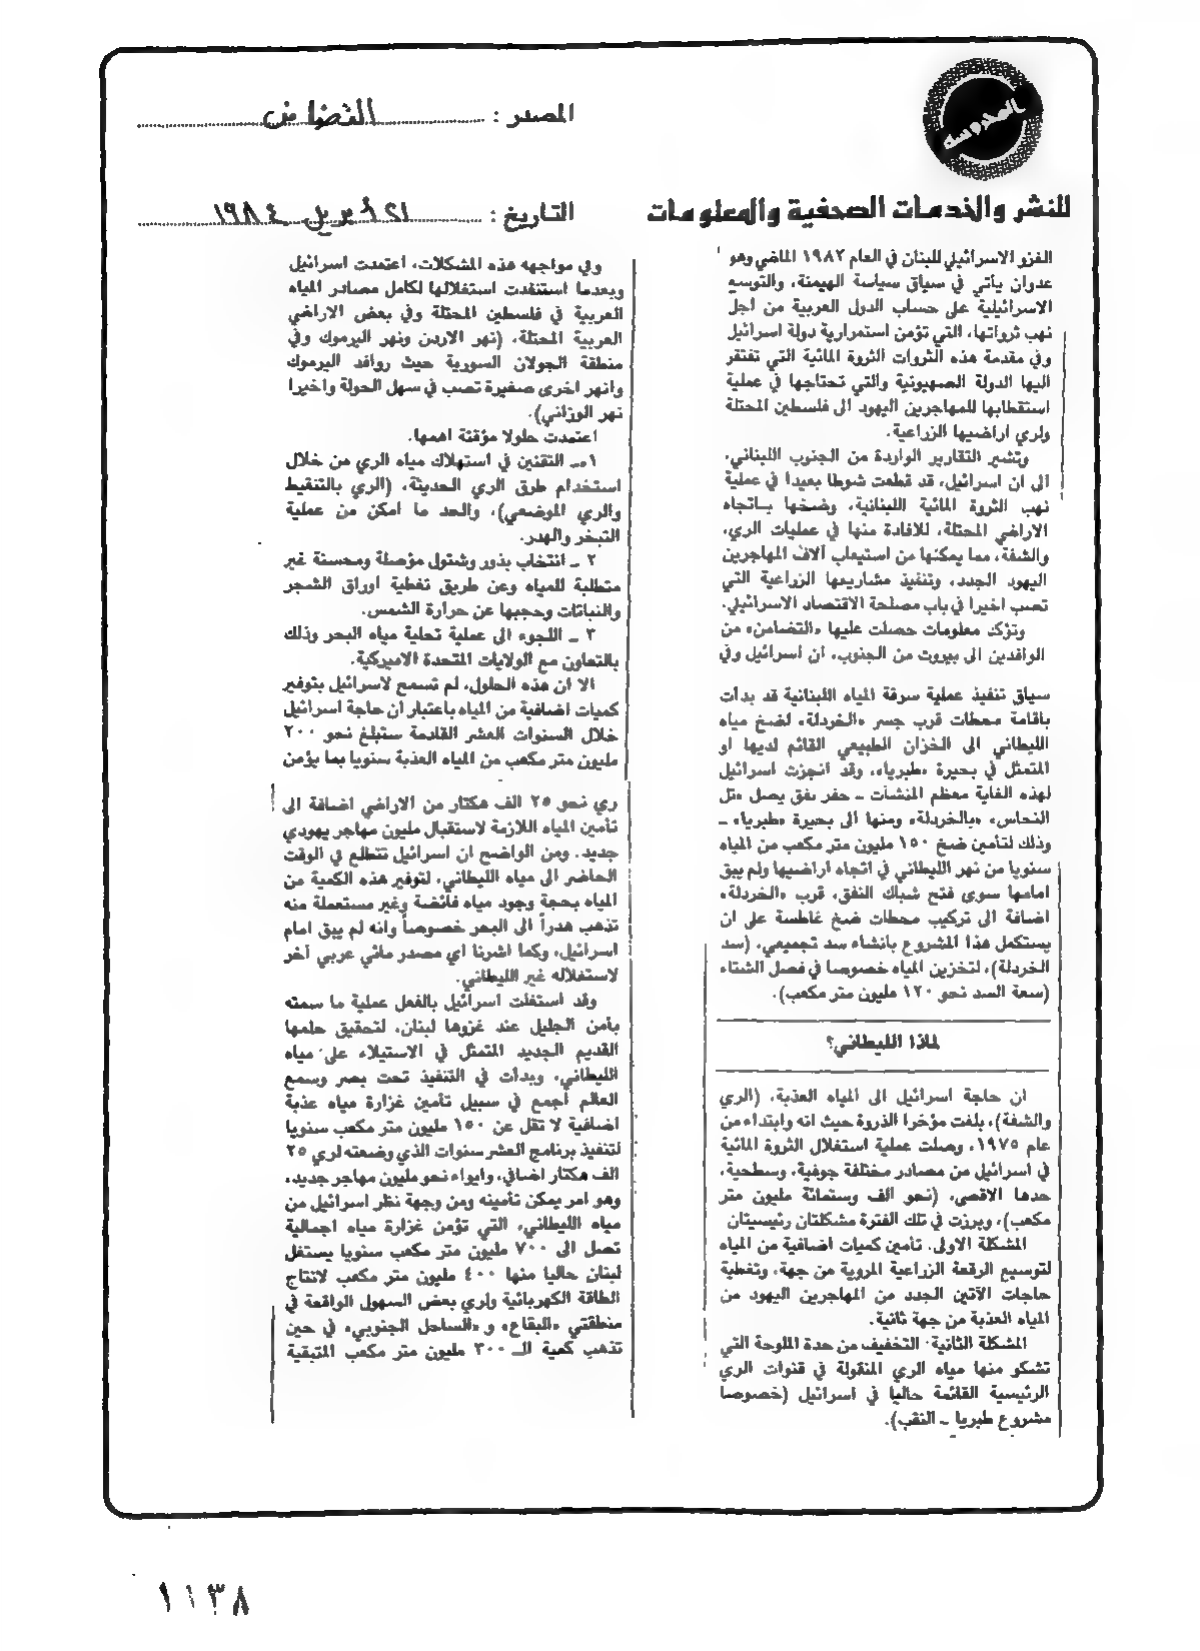 المحروسة
المصدر : التضامن
للنشر والخدمات الصحفية والمعلومات
التاريخ : ٢١ أبريل ١٩٨٤
الغزو الاسرائيلي للبنان في العام ١٩٨٢ الماضي وهو
عدوان يأتي في سياق سياسة الهيمنة، والتوسع
الاسرائيلية على حساب الدول العربية من أجل
نهب ثرواتها، التي تؤمن استمرارية دولة اسرائيل
وفي مقدمة هذه الثروات الثروة المائية التي تفتقر
اليها الدولة الصهيونية والتي تحتاجها في عملية
استقطابها للمهاجرين اليهود الى فلسطين المحتلة
ولري اراضيها الزراعية.
وتشير التقارير الواردة من الجنوب اللبناني،
الى ان اسرائيل، قد قطعت شوطا بعيدا في عملية
نهب الثروة المائية اللبنانية، وضخها باتجاه
الاراضي المحتلة، للافادة منها في عمليات الري،
والشفة، مما يمكنها من استيعاب آلاف المهاجرين
اليهود الجدد، وتنفيذ مشاريعها الزراعية التي
تصب اخيرا في باب مصلحة الاقتصاد الاسرائيلي.
وتؤكد معلومات حصلت عليها «التضامن» من
الوافدين الى بيروت من الجنوب، ان اسرائيل وفي
سياق تنفيذ عملية سرقة المياه اللبنانية قد بدأت
باقامة محطات قرب جسر «الخردلة» لضخ مياه
الليطاني الى الخزان الطبيعي القائم لديها او
المتمثل في بحيرة «طبريا»، وقد انجزت اسرائيل
لهذه الغاية معظم المنشآت ـ حفر نفق يصل «تل
النحاس» «بالخردلة» ومنها الى بحيرة «طبريا» ـ
وذلك لتأمين ضخ ١٥٠ مليون متر مكعب من المياه
سنويا من نهر الليطاني في اتجاه اراضيها ولم يبق
امامها سوى فتح شباك النفق، قرب «الخردلة»
اضافة الى تركيب محطات ضخ غاطسة على ان
يستكمل هذا المشروع بانشاء سد تجميعي، (سد
الخردلة)، لتخزين المياه خصوصا في فصل الشتاء
(سعة السد نحو ١٢٠ مليون متر مكعب).
لماذا الليطاني؟
ان حاجة اسرائيل الى المياه العذبة، (الري
والشفة)، بلغت مؤخرا الذروة حيث انه وابتداء من
عام ١٩٧٥، وصلت عملية استغلال الثروة المائية
في اسرائيل من مصادر مختلفة جوفية، وسطحية،
حدها الاقصى، (نحو الف وستمائة مليون متر
مكعب)، وبرزت في تلك الفترة مشكلتان رئيسيتان
المشكلة الاولى. تأمين كميات اضافية من المياه
لتوسيع الرقعة الزراعية المروية من جهة، وتغطية
حاجات الآتين الجدد من المهاجرين اليهود من
المياه العذبة من جهة ثانية.
المشكلة الثانية: التخفيف من حدة الملوحة التي
تشكو منها مياه الري المنقولة في قنوات الري
الرئيسية القائمة حاليا في اسرائيل (خصوصا
مشروع طبريا ـ النقب).
وفي مواجهه هذه المشكلات، اعتمدت اسرائيل
وبعدما استنفدت استغلالها لكامل مصادر المياه
العربية في فلسطين المحتلة وفي بعض الاراضي
العربية المحتلة، (نهر الاردن ونهر اليرموك وفي
منطقة الجولان السورية حيث روافد اليرموك
وانهر اخرى صغيرة تصب في سهل الحولة واخيرا
نهر الوزاني).
اعتمدت حلولا مؤقتة اهمها.
١ـ التقنين في استهلاك مياه الري من خلال
استخدام طرق الري الحديثة، (الري بالتنقيط
والري الموضعي)، والحد ما امكن من عملية
التبخر والهدر.
٢ ـ انتخاب بذور وشتول مؤصلة ومحسنة غير
متطلبة للمياه وعن طريق تغطية اوراق الشجر
والنباتات وحجبها عن حرارة الشمس.
٣ ـ اللجوء الى عملية تحلية مياه البحر وذلك
بالتعاون مع الولايات المتحدة الاميركية.
الا ان هذه الحلول، لم تسمح لاسرائيل بتوفير
كميات اضافية من المياه باعتبار ان حاجة اسرائيل
خلال السنوات العشر القادمة ستبلغ نحو ٢٠٠
مليون متر مكعب من المياه العذبة سنويا بما يؤمن
ري نحو ٢٥ الف هكتار من الاراضي اضافة الى
تأمين المياه اللازمة لاستقبال مليون مهاجر يهودي
جديد. ومن الواضح ان اسرائيل تتطلع في الوقت
الحاضر الى مياه الليطاني، لتوفير هذه الكمية من
المياه بحجة وجود مياه فائضة وغير مستعملة منه
تذهب هدراً الى البحر خصوصاً وانه لم يبق امام
اسرائيل، وكما اشرنا اي مصدر مائي عربي آخر
لاستغلاله غير الليطاني.
وقد استغلت اسرائيل بالفعل عملية ما سمته
بأمن الجليل عند غزوها لبنان، لتحقيق حلمها
القديم الجديد المتمثل في الاستيلاء على مياه
الليطاني، وبدأت في التنفيذ تحت بصر وسمع
العالم أجمع في سبيل تأمين غزارة مياه عذبة
اضافية لا تقل عن ١٥٠ مليون متر مكعب سنويا
لتنفيذ برنامج العشر سنوات الذي وضعته لري ٢٥
الف هكتار اضافي، وايواء نحو مليون مهاجر جديد،
وهو امر يمكن تأمينه ومن وجهة نظر اسرائيل من
مياه الليطاني، التي تؤمن غزارة مياه اجمالية
تصل الى ٧٠٠ مليون متر مكعب سنويا يستغل
لبنان حاليا منها ٤٠٠ مليون متر مكعب لانتاج
الطاقة الكهربائية ولري بعض السهول الواقعة في
منطقتي «البقاع» و «الساحل الجنوبي» في حين
تذهب كمية الـ ٣٠٠ مليون متر مكعب المتبقية
١١٣٨